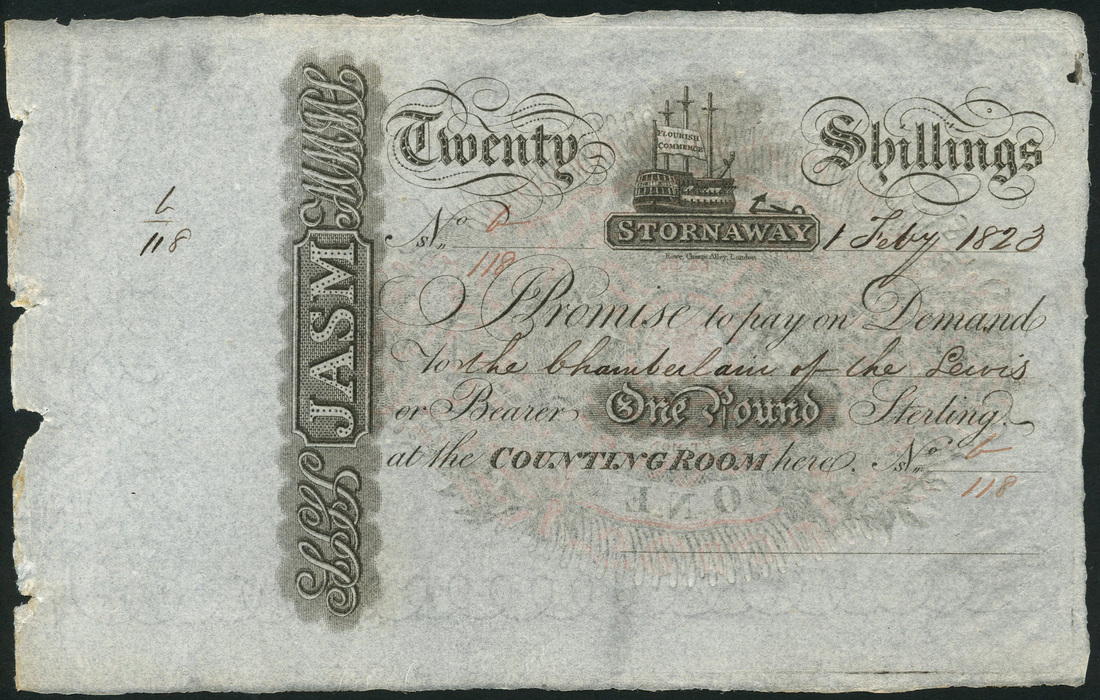 b
118
JASM
Twenty Shillings
FLOURISH
COMMERCE
STORNAWAY
No b
118
1 Feby 1823
Rowe, Change Alley, London
I Promise to pay on Demand
To the Chamberlain of the Lewis
or Bearer One Pound Sterling
at the COUNTING ROOM here. No b
118
ONE